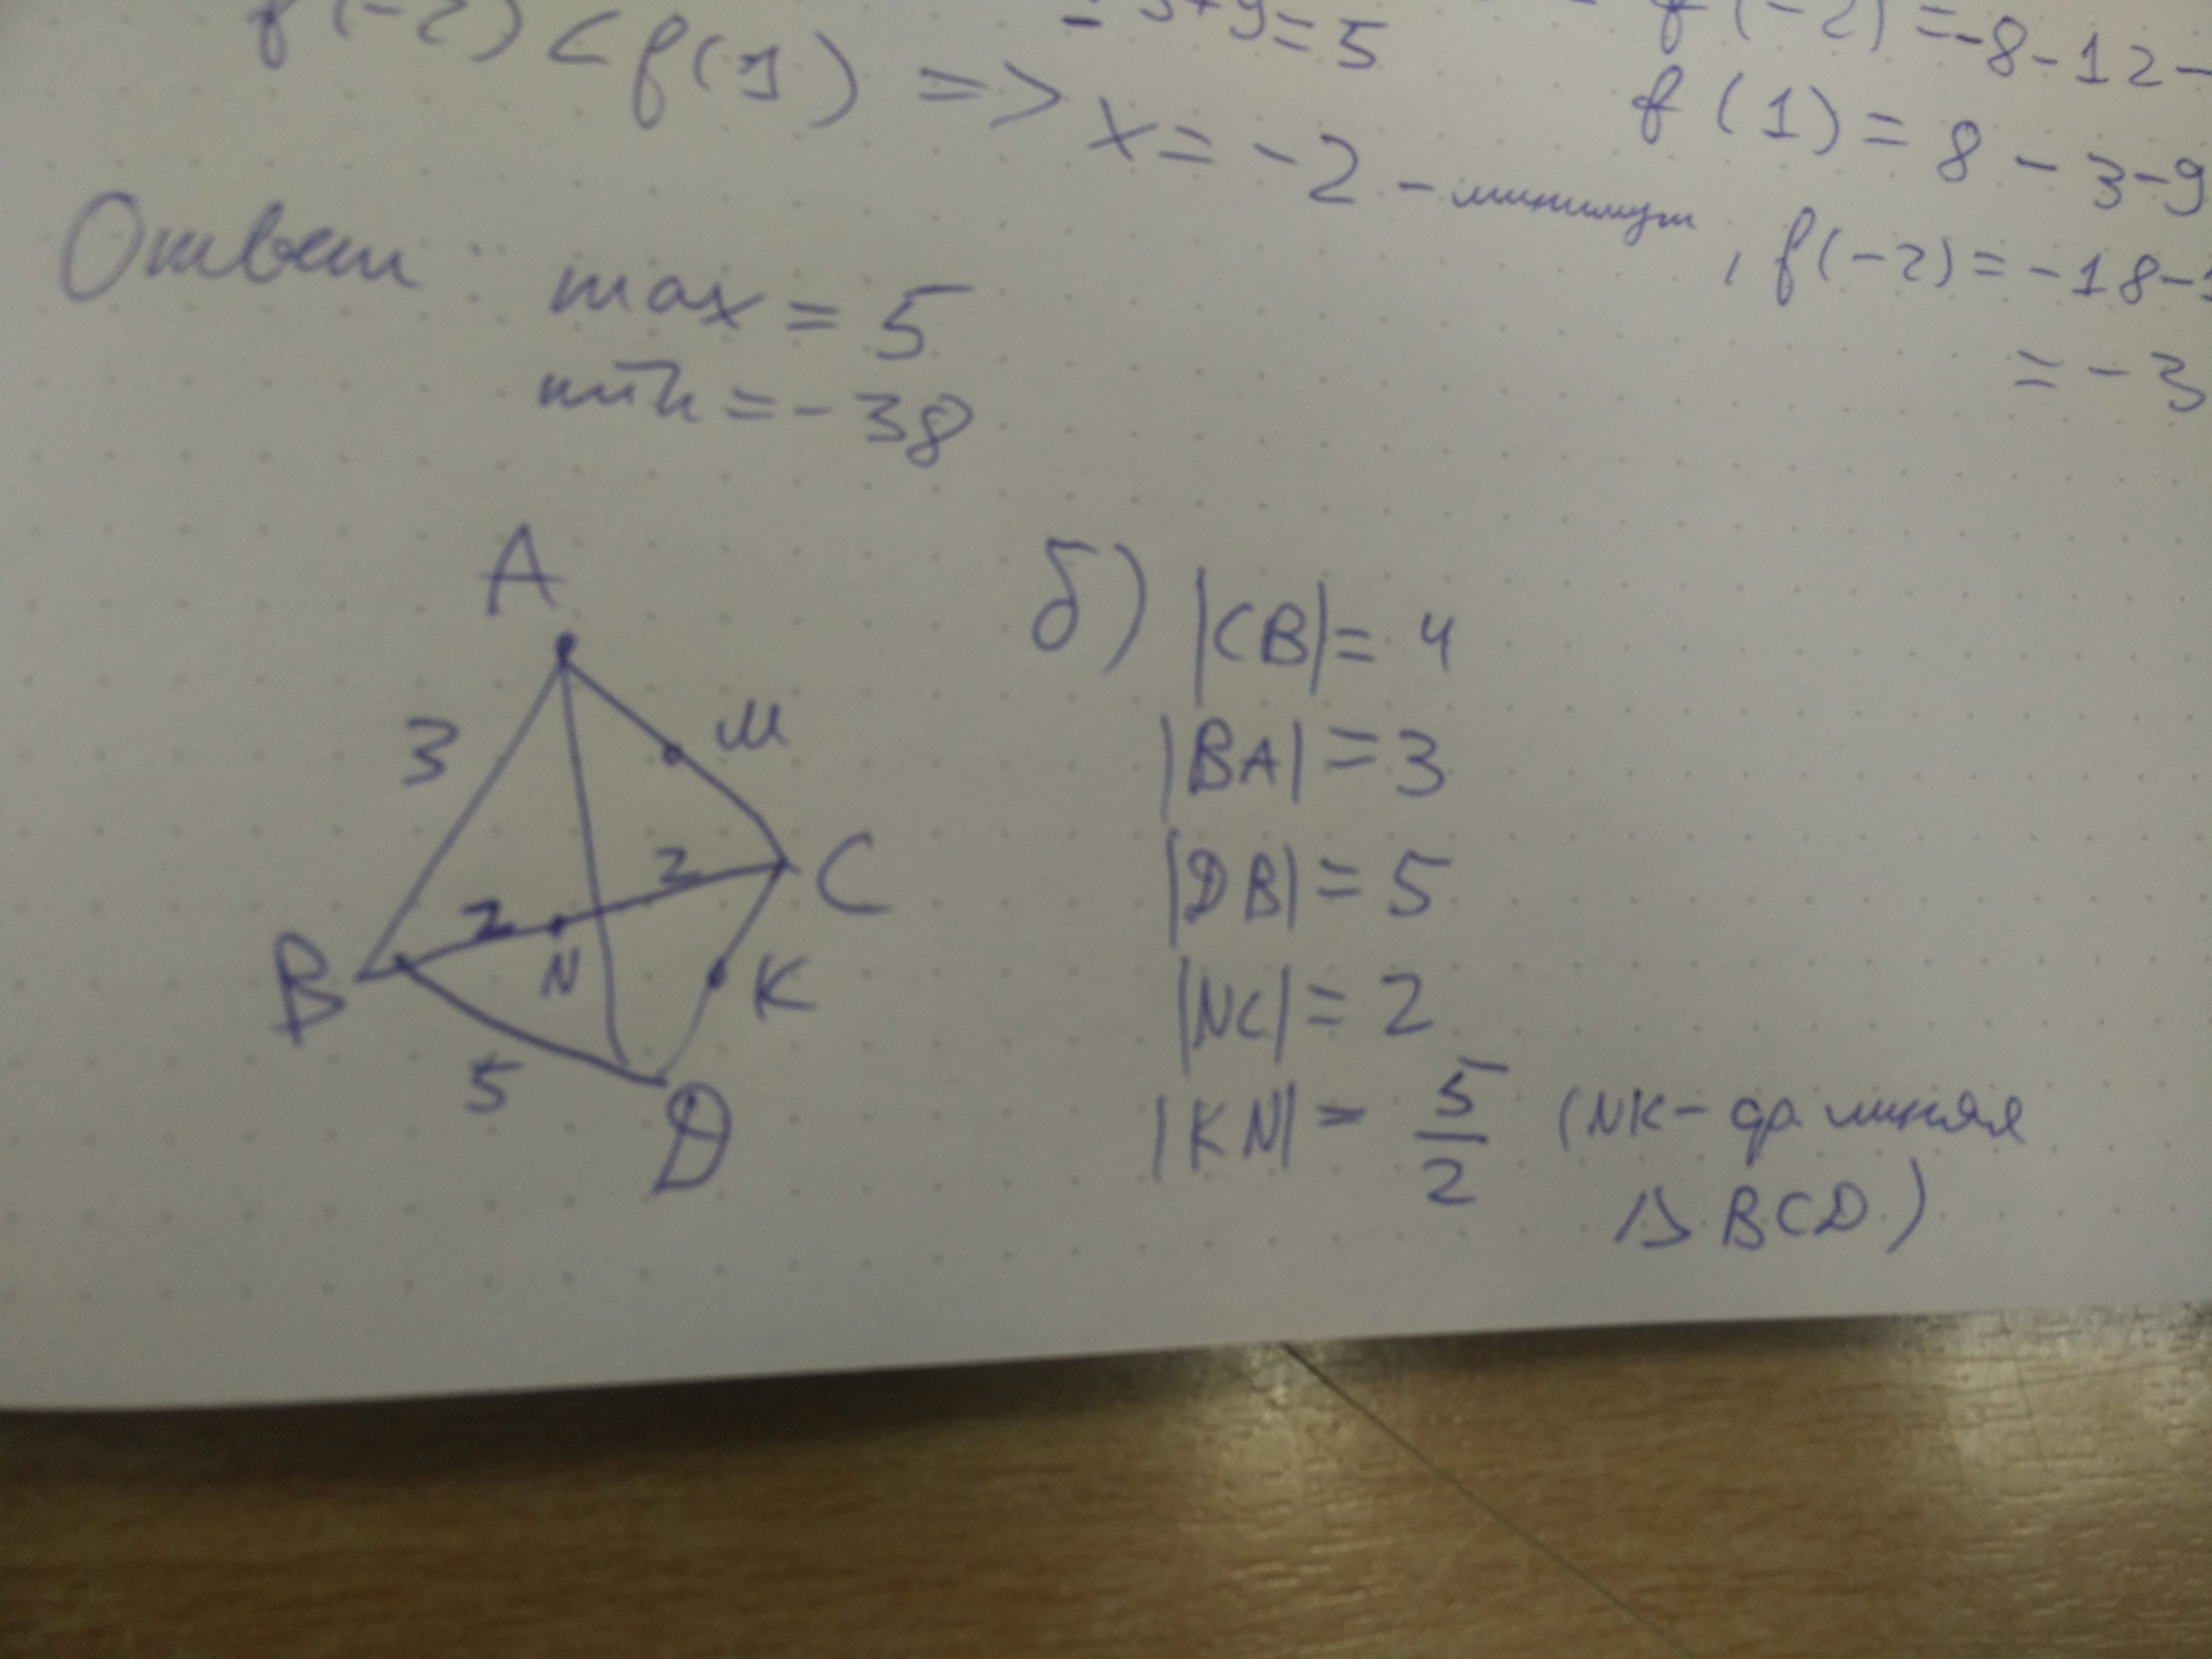 f(-2) < f(1) => x = -2 - минимум, f(-2) = -18-
= 5
f(-2) = -8-12-
f(1) = 8 - 3-9
= -3
Ответ: max = 5
min = -38
A
3
M
2
C
2
N
B
K
5
D
б) |CB| = 4
|BA| = 3
|DB| = 5
|NC| = 2
|KN| = 5/2 (NK - ср. линяя
△ BCD)